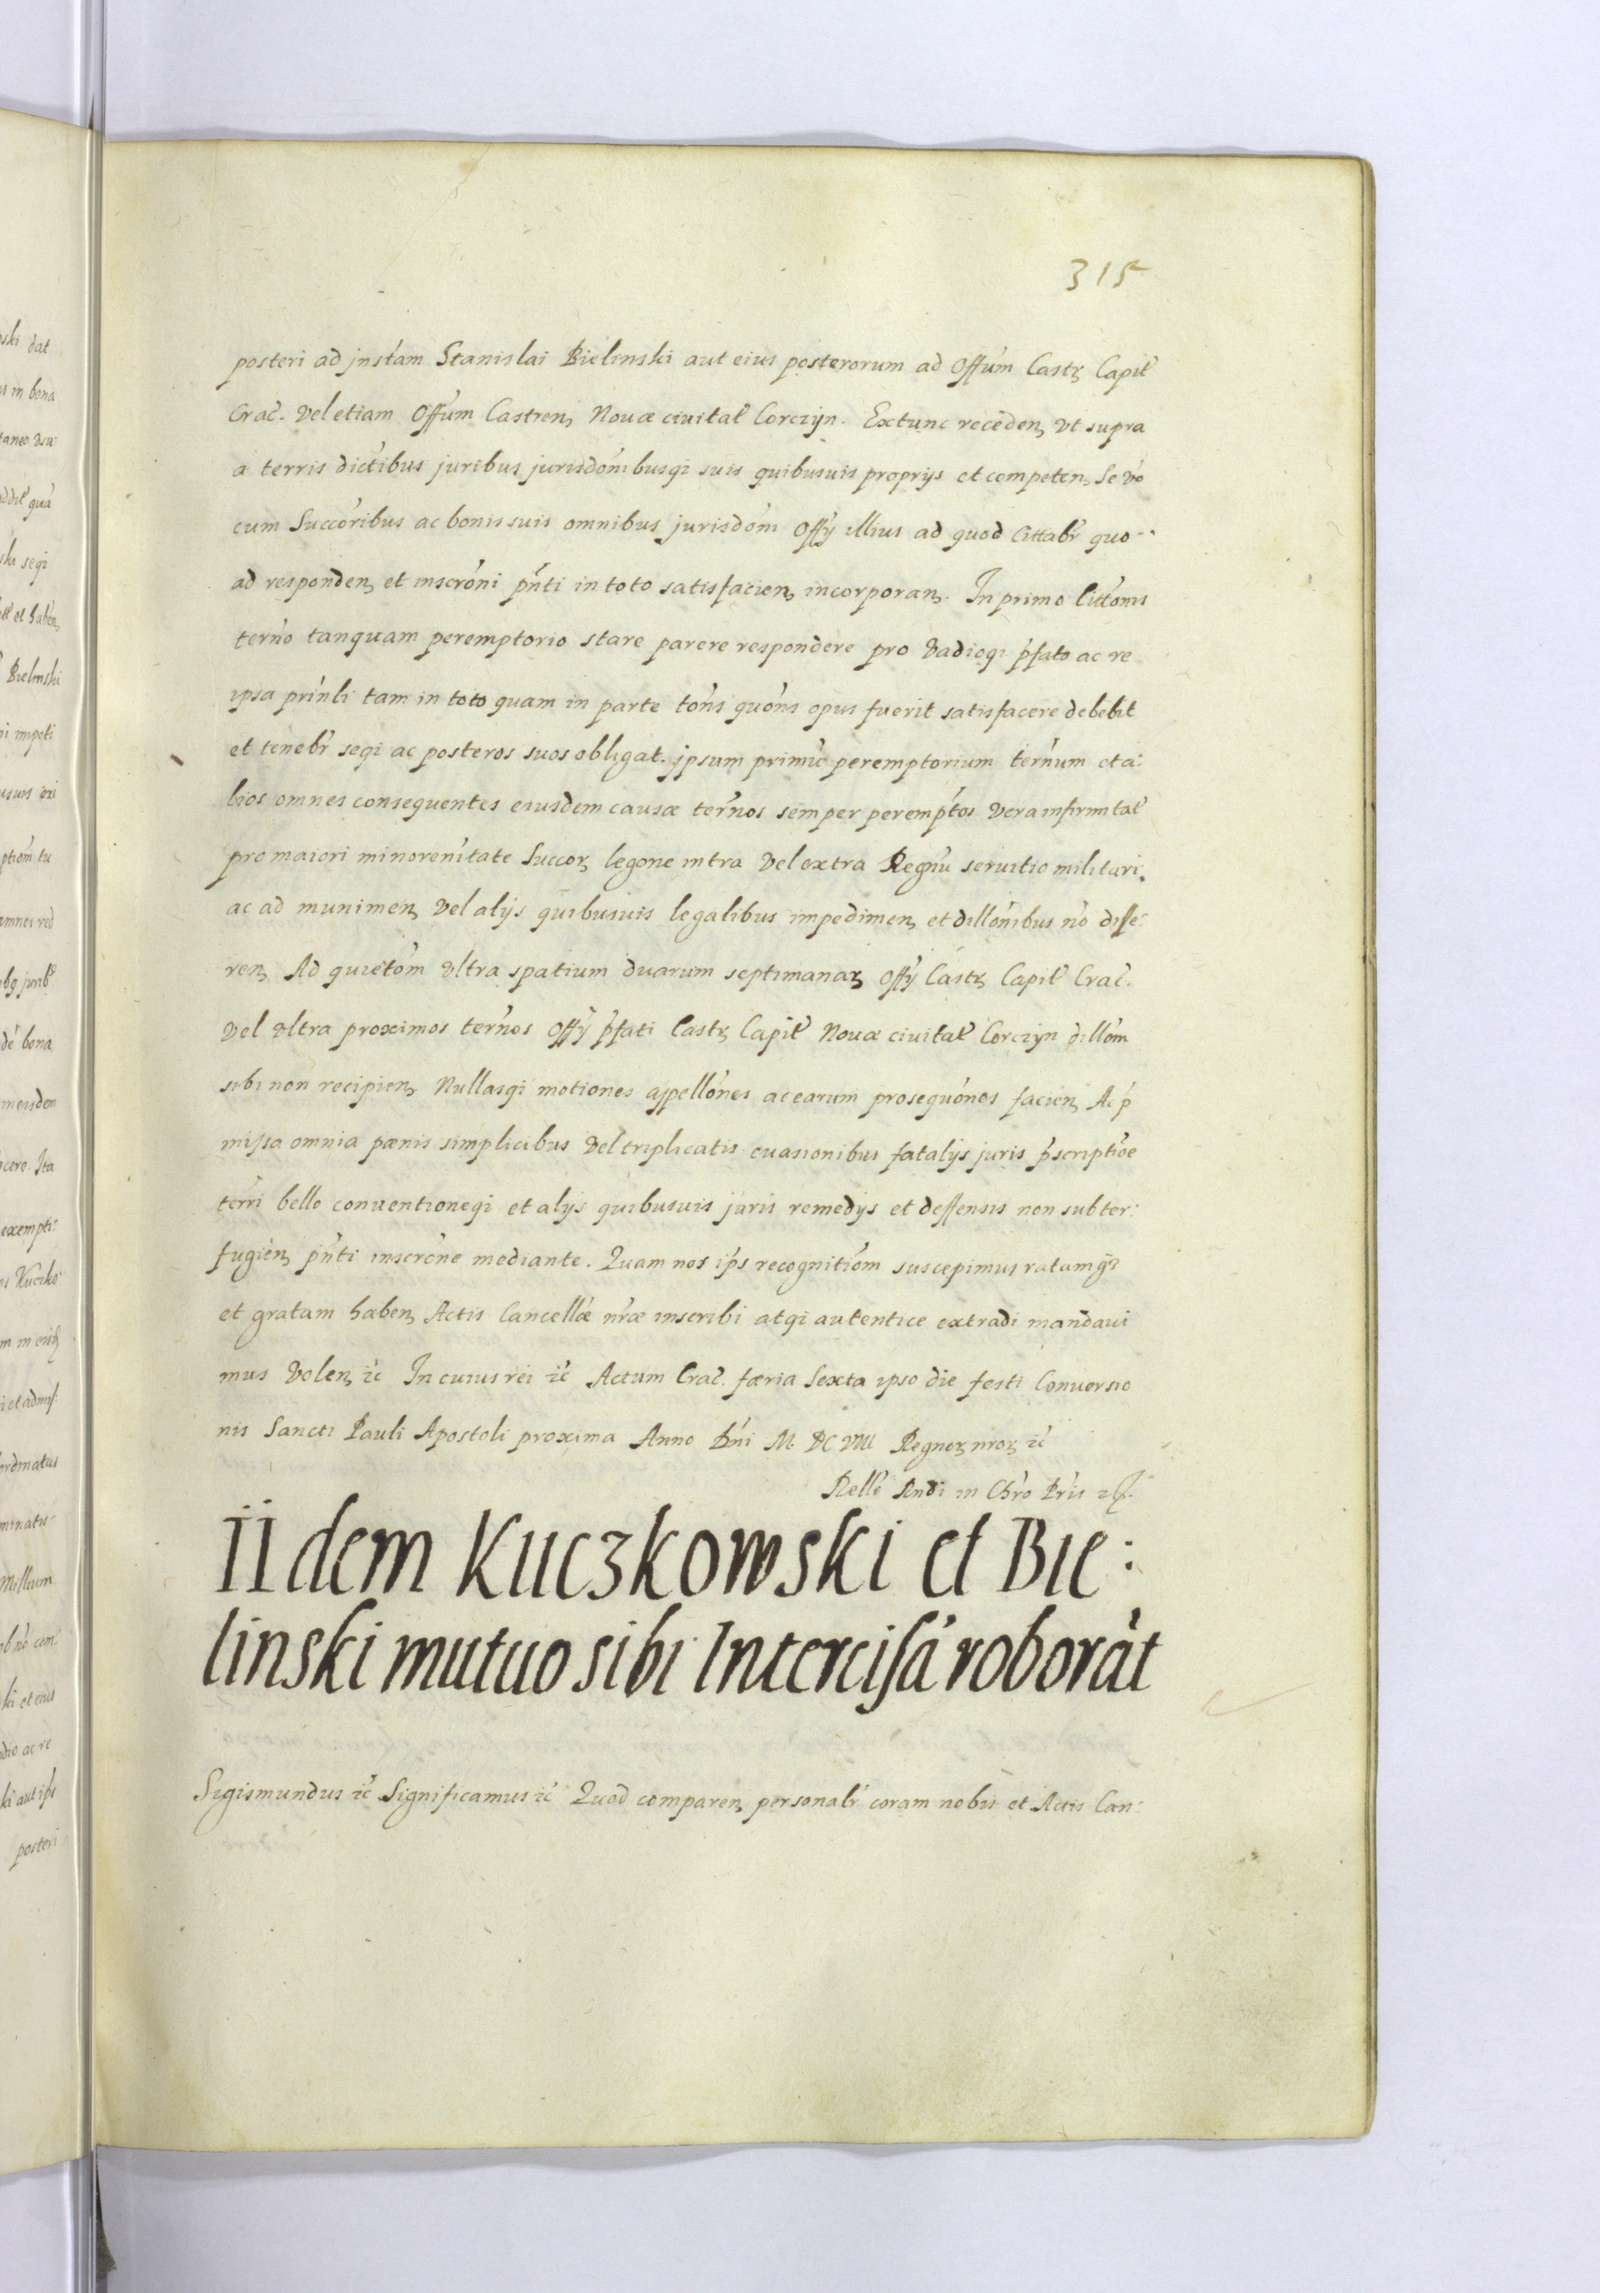 315
posteri ad jnstam Stanislai Bielinski aut eius posterorum ad Offum Castr Capit
Crac. Vel etiam Offum Castren, Nouæ ciuitat Corczyn. Extunc receden, Vt supra
a terris dictibus juribus jurisdonibusqi suis quibusuis proprijs et competen, Se vo
cum Succoribus ac bonis suis omnibus jurisdom Offy illius ad quod cittabr quo
ad responden, et inscroni pnti in toto satisfacien, incorporan. In primo cittonis
terno tanquam peremptorio stare parere respondere pro Vadioqi pfato ac re
ipsa prinli tam in toto quam in parte tons quons opus fuerit satisfacere debebit
et tenebr seqi ac posteros suos obligat. jpsum primu peremptorium ternum et a:
lios omnes consequentes eiusdem causæ ternos semper peremptos Vera infirmitat
pro maiori minorenitate Succor, legone intra Vel extra Regnu seruitio militari
ac ad munimen, Vel alijs quibusuis legalibus impedimen, et dillonibus no diffe:
ren, Ad quietom Vltra spatium duarum septimanar Offy Castr Capit Crac.
Vel Vltra proximos ternos Offy pfati Castr Capit Nouæ ciuitat Corczyn dillom
sibi non recipien, Nullasqi motiones appellones ac earum prosequones facien, Ac p
missa omnia pænis simplicibus Vel triplicatis euasionibus fatalijs juris pscriptioe
terri bello conuentioneqi et alijs quibusuis juris remedijs et deffensis non subter:
fugien, pnti inscrone mediante. Quam nos ips recognitiom suscepimus ratamqi
et gratam haben, Actis Cancellæ nræ inscribi atqi autentice extradi mandaui
mus Volen, etc In cuius rei etc Actum Crac. færia Sexta ipso die festi Conuersio
nis Sancti Pauli Apostoli proxima Anno Dni M. DC VIII Regnor nror etc
Relle Rndi in Chro Pris etc.
IIdem Kuczkowski et Bie:
linski mutuo sibi Intercisá roborát
Sigismundus etc Significamus etc Quod comparen, personalr coram nobis et Actis Can: